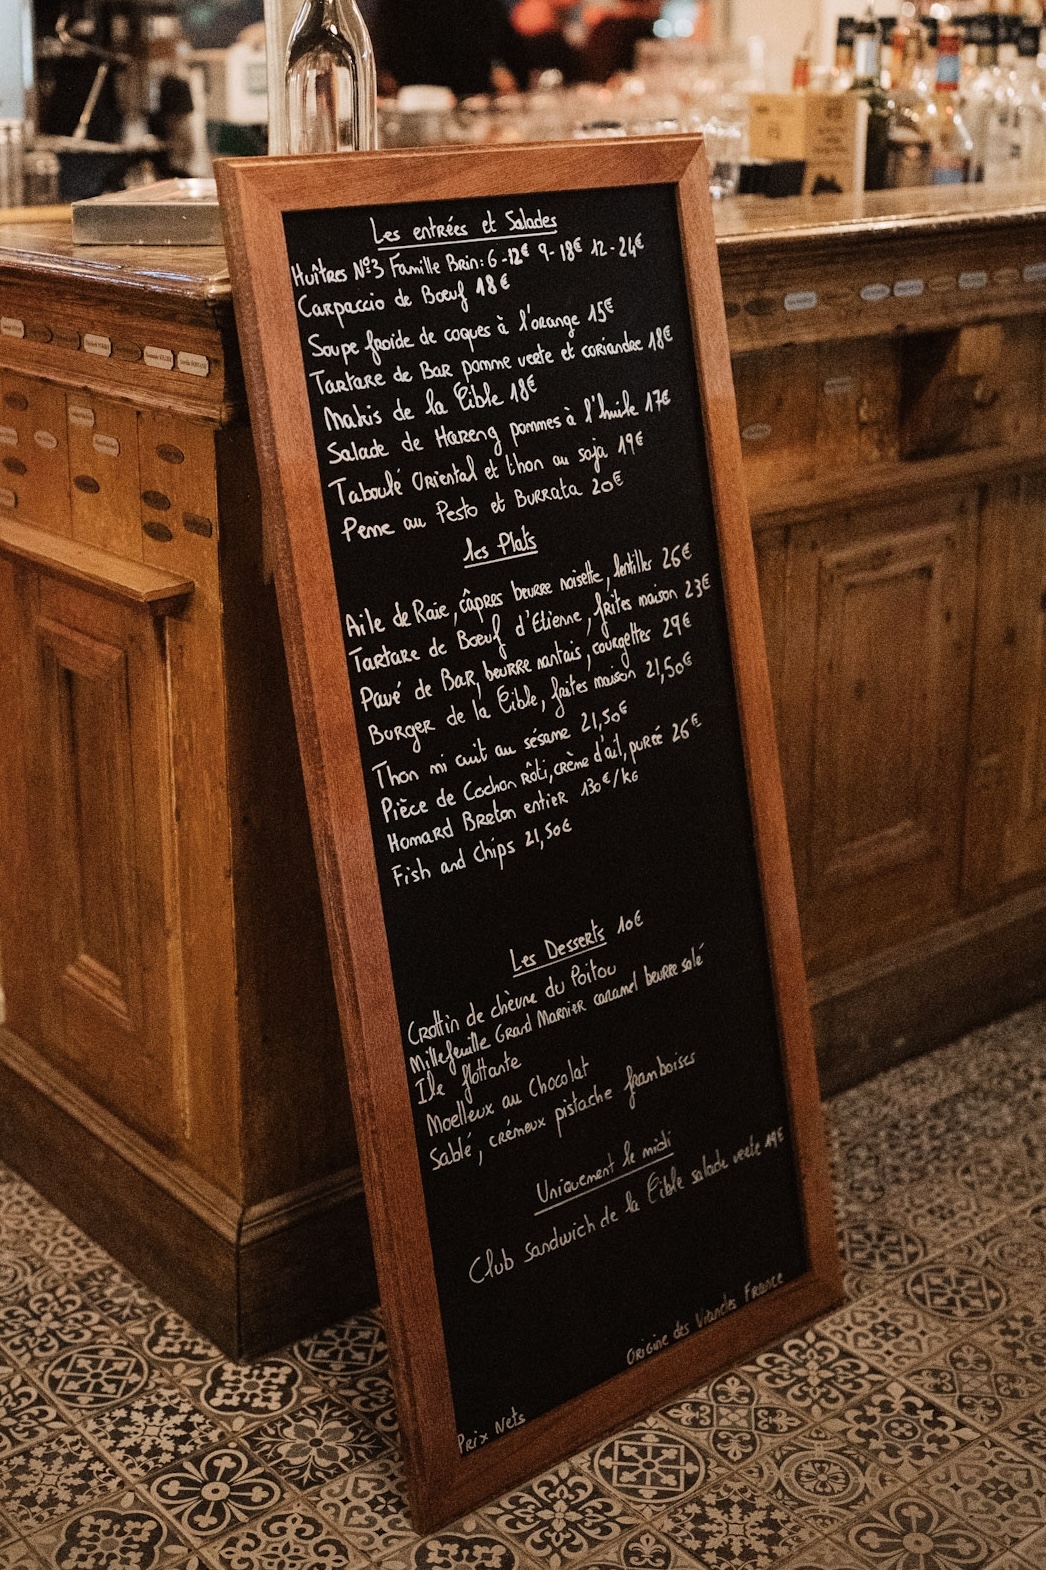 Les entrées et Salades
Huîtres Nº3 Famille Brin: 6-12€ 9-18€ 12-24€
Carpaccio de Bœuf 18€
Soupe froide de coques à l'orange 15€
Tartare de Bar pomme verte et coriandre 18€
Makis de la Cible 18€
Salade de Hareng pommes à l'huile 17€
Taboulé Oriental et thon au soja 19€
Penne au Pesto et Burrata 20€
les Plats
Aile de Raie, câpres beurre noisette, lentilles 26€
Tartare de Bœuf d'Etienne, frites maison 23€
Pavé de Bar, beurre nantais, courgettes 29€
Burger de la Cible, frites maison 21,50€
Thon mi cuit au sésame 21,50€
Pièce de Cochon rôti, crème d'ail, purée 26€
Homard Breton entier 130€/kg
Fish and Chips 21,50€
Les Desserts 10€
Crottin de chèvre du Poitou
Millefeuille Grand Marnier caramel beurre salé
Ile flottante
Moelleux au Chocolat
Sablé, crémeux pistache framboises
Uniquement le midi
Club Sandwich de la Cible salade verte 19€
Origine des Viandes France
Prix Nets